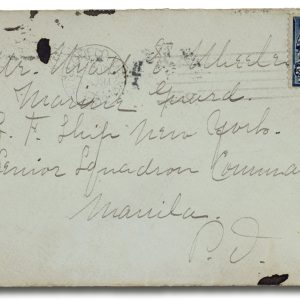 Mr. Wheeler
Marine Guard.
S. F. Ship New York.
Senior Squadron Comma
Manila.
P. I.